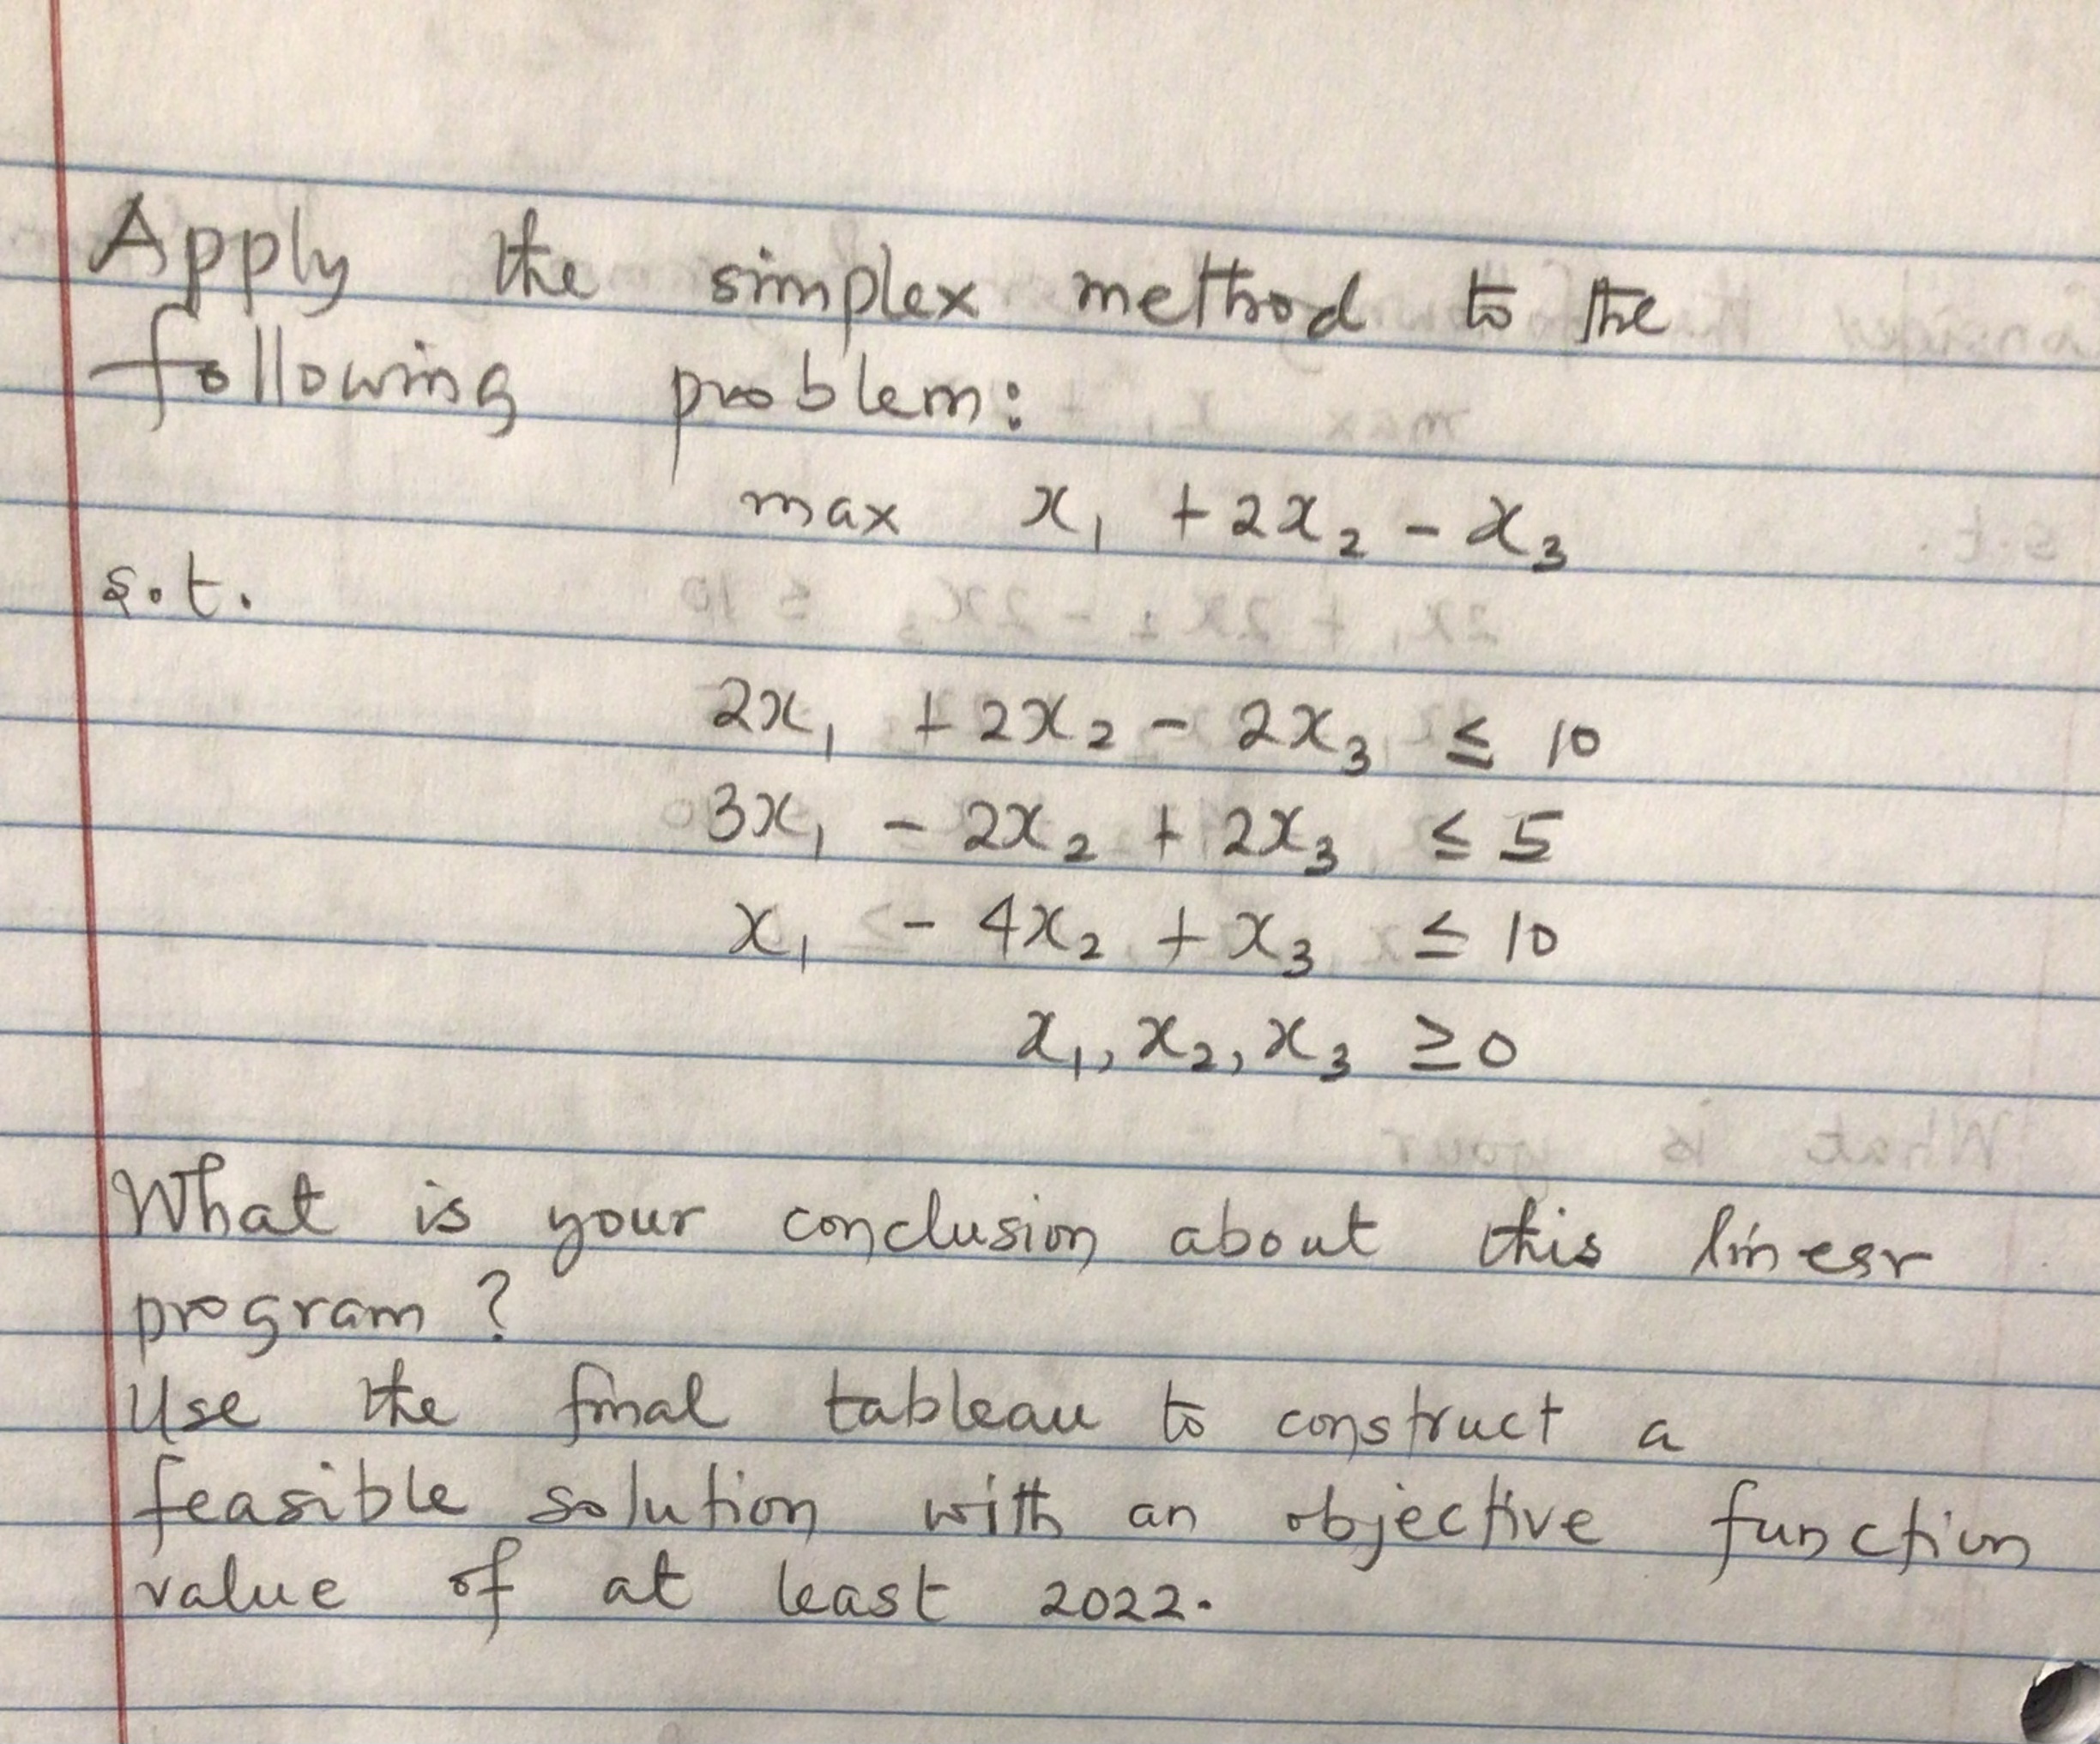 Apply the simplex method to the
following problem:
max x₁ + 2x₂ - x₃
s.t.
2x₁ + 2x₂ - 2x₃ ≤ 10
3x₁ - 2x₂ + 2x₃ ≤ 5
x₁ - 4x₂ + x₃ ≤ 10
x₁, x₂, x₃ ≥ 0
What is your conclusion about this linear
program?
Use the final tableau to construct a
feasible solution with an objective function
value of at least 2022.